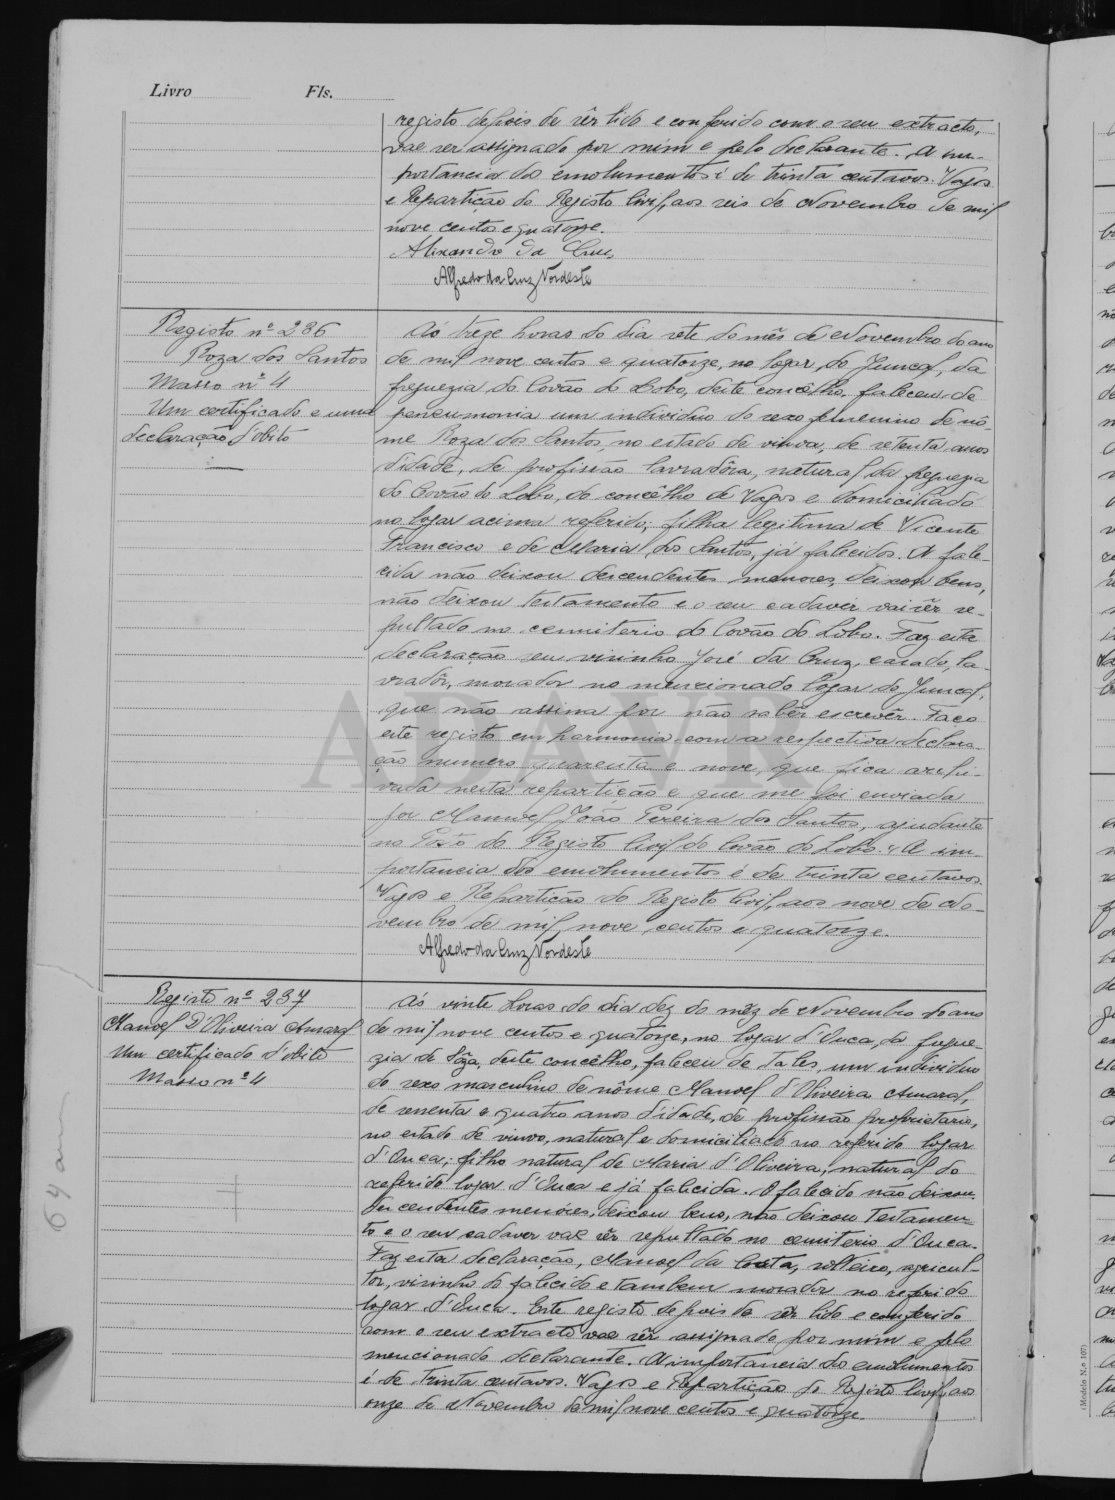 Livro Fls.
registo depois de sêr lido e conferido com o seu extracto,
vae ser assignado por mim e pelo declarante. A im-
portancia dos emolumentos é de trinta centavos. Vagos
e Repartição do Registo Civil, aos seis de Novembro de mil
nove centos e quatorze.
Alexandre da Cruz
Alfredo da Cruz Nordeste
Registo nº 236
Roza dos Santos
Masso nº 4
Um certificado e uma
declaração d'obito
Aś treze horas do dia sete do mês de Novembro do ano
de mil nove centos e quatorze, no logar do Juncal, da
freguezia do Covão do Lobo, deste concêlho, faleceu de
peneumonia um individuo do sexo femenino de nô-
me Roza dos Santos, no estado de viuva, de setenta anos
d'idade, de profissão lavradôra, natural da freguezia
do Covão do Lobo, do concêlho de Vagos e domiciliada
no logar acima referido; filha legitima de Vicente
Francisco e de Maria dos Santos, já falecidos. A fale-
cida não deixou descendentes menores, deixou bens,
não deixou testamento e o seu cadaver vai sêr se-
pultado no cemiterio do Covão do Lobo. Faz esta
declaração seu visinho José da Cruz, casado, la-
vradôr, morador no mencionado logar do Juncal,
que não assina por não sabêr escrevêr. Faço
este registo em harmonia com a respectiva declara-
ção numero quarenta e nove, que fica archi-
vada nesta repartição e que me foi enviada
por Manuel João Pereira dos Santos, ajudante
no Posto do Registo Civil do Covão do Lobo. A im-
portancia dos emolumentos é de trinta centavos.
Vagos e Repartição do Registo Civil, aos nove de No-
vembro de mil nove centos e quatorze.
Alfredo da Cruz Nordeste
ADAVR
Registo nº 237
Manoel D'Oliveira Amaral
Um certificado d'obito
Masso nº 4
64 an
Aś vinte horas do dia dez do mêz de Novembro do ano
de mil nove centos e quatorze, no logar d'Ouca, da fregue-
zia de Sôza, deste concêlho, faleceu de Tabes, um individuo
do sexo masculino de nôme Manoel d'Oliveira Amaral,
de sesenta e quatro anos d'idade, de profissão proprietario,
no estado de viuvo, natural e domiciliado no referido logar
d'Ouca; filho natural de Maria d'Oliveira, natural do
referido logar d'Ouca e já falecida. O falecido não deixou
descendentes menóres, deixou bens, não deixou testamen-
to e o seu cadaver vae sêr sepultado no cemiterio d'Ouca.
Faz esta declaração, Manoel da Costa, solteiro, agricul-
tor, visinho do falecido e tambem morador no referido
logar d'Ouca. Este registo depois de sêr lido e conferido
com o seu extracto vae sêr assignado por mim e pelo
mencionado declarante. A importancia dos emolumentos
é de trinta centavos. Vagos e Repartição do Registo Civil, aos
onze de Novembro de mil nove centos e quatorze.
(Modelo N.º 107)